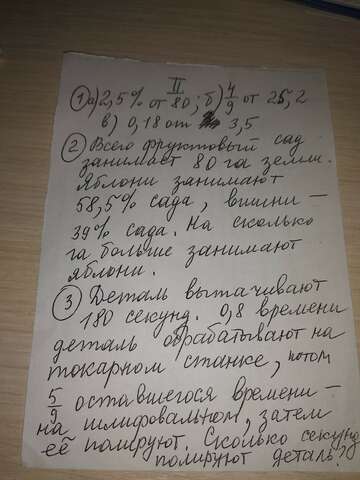 II
① а) 2,5% от 80; б) 4/9 от 25,2
в) 0,18 от 3,5
② Всего фруктовый сад
занимает 80 га земли.
Яблони занимают
58,5% сада, вишни –
39% сада. На сколько
га больше занимают
яблони.
③ Деталь вытачивают
180 секунд. 0,8 времени
деталь обрабатывают на
токарном станке, потом
5/9 оставшегося времени –
на шлифовальном, затем
её полируют. Сколько секунд
полируют деталь?